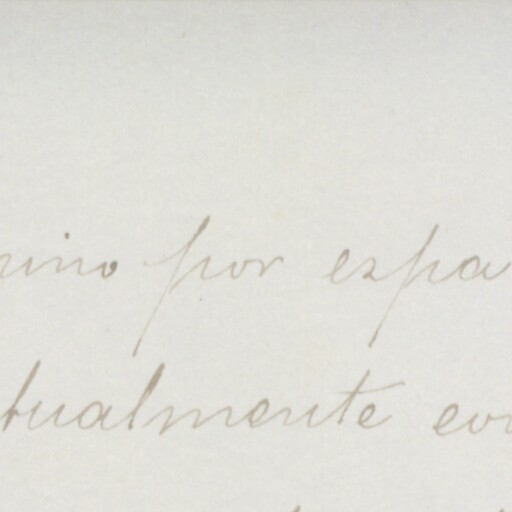 nino por espa
tualmente evi